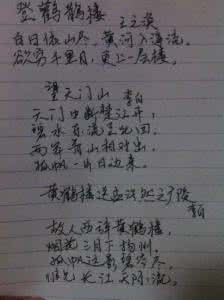 登鹳鹤楼
王之涣
白日依山尽,黄河入海流。
欲穷千里目,更上一层楼。
望天门山
李白
天门中断楚江开,
碧水东流至此回。
两岸青山相对出,
孤帆一片日边来。
黄鹤楼送孟浩然之广陵
李白
故人西辞黄鹤楼,
烟花三月下扬州。
孤帆远影碧空尽,
唯见长江天际流。